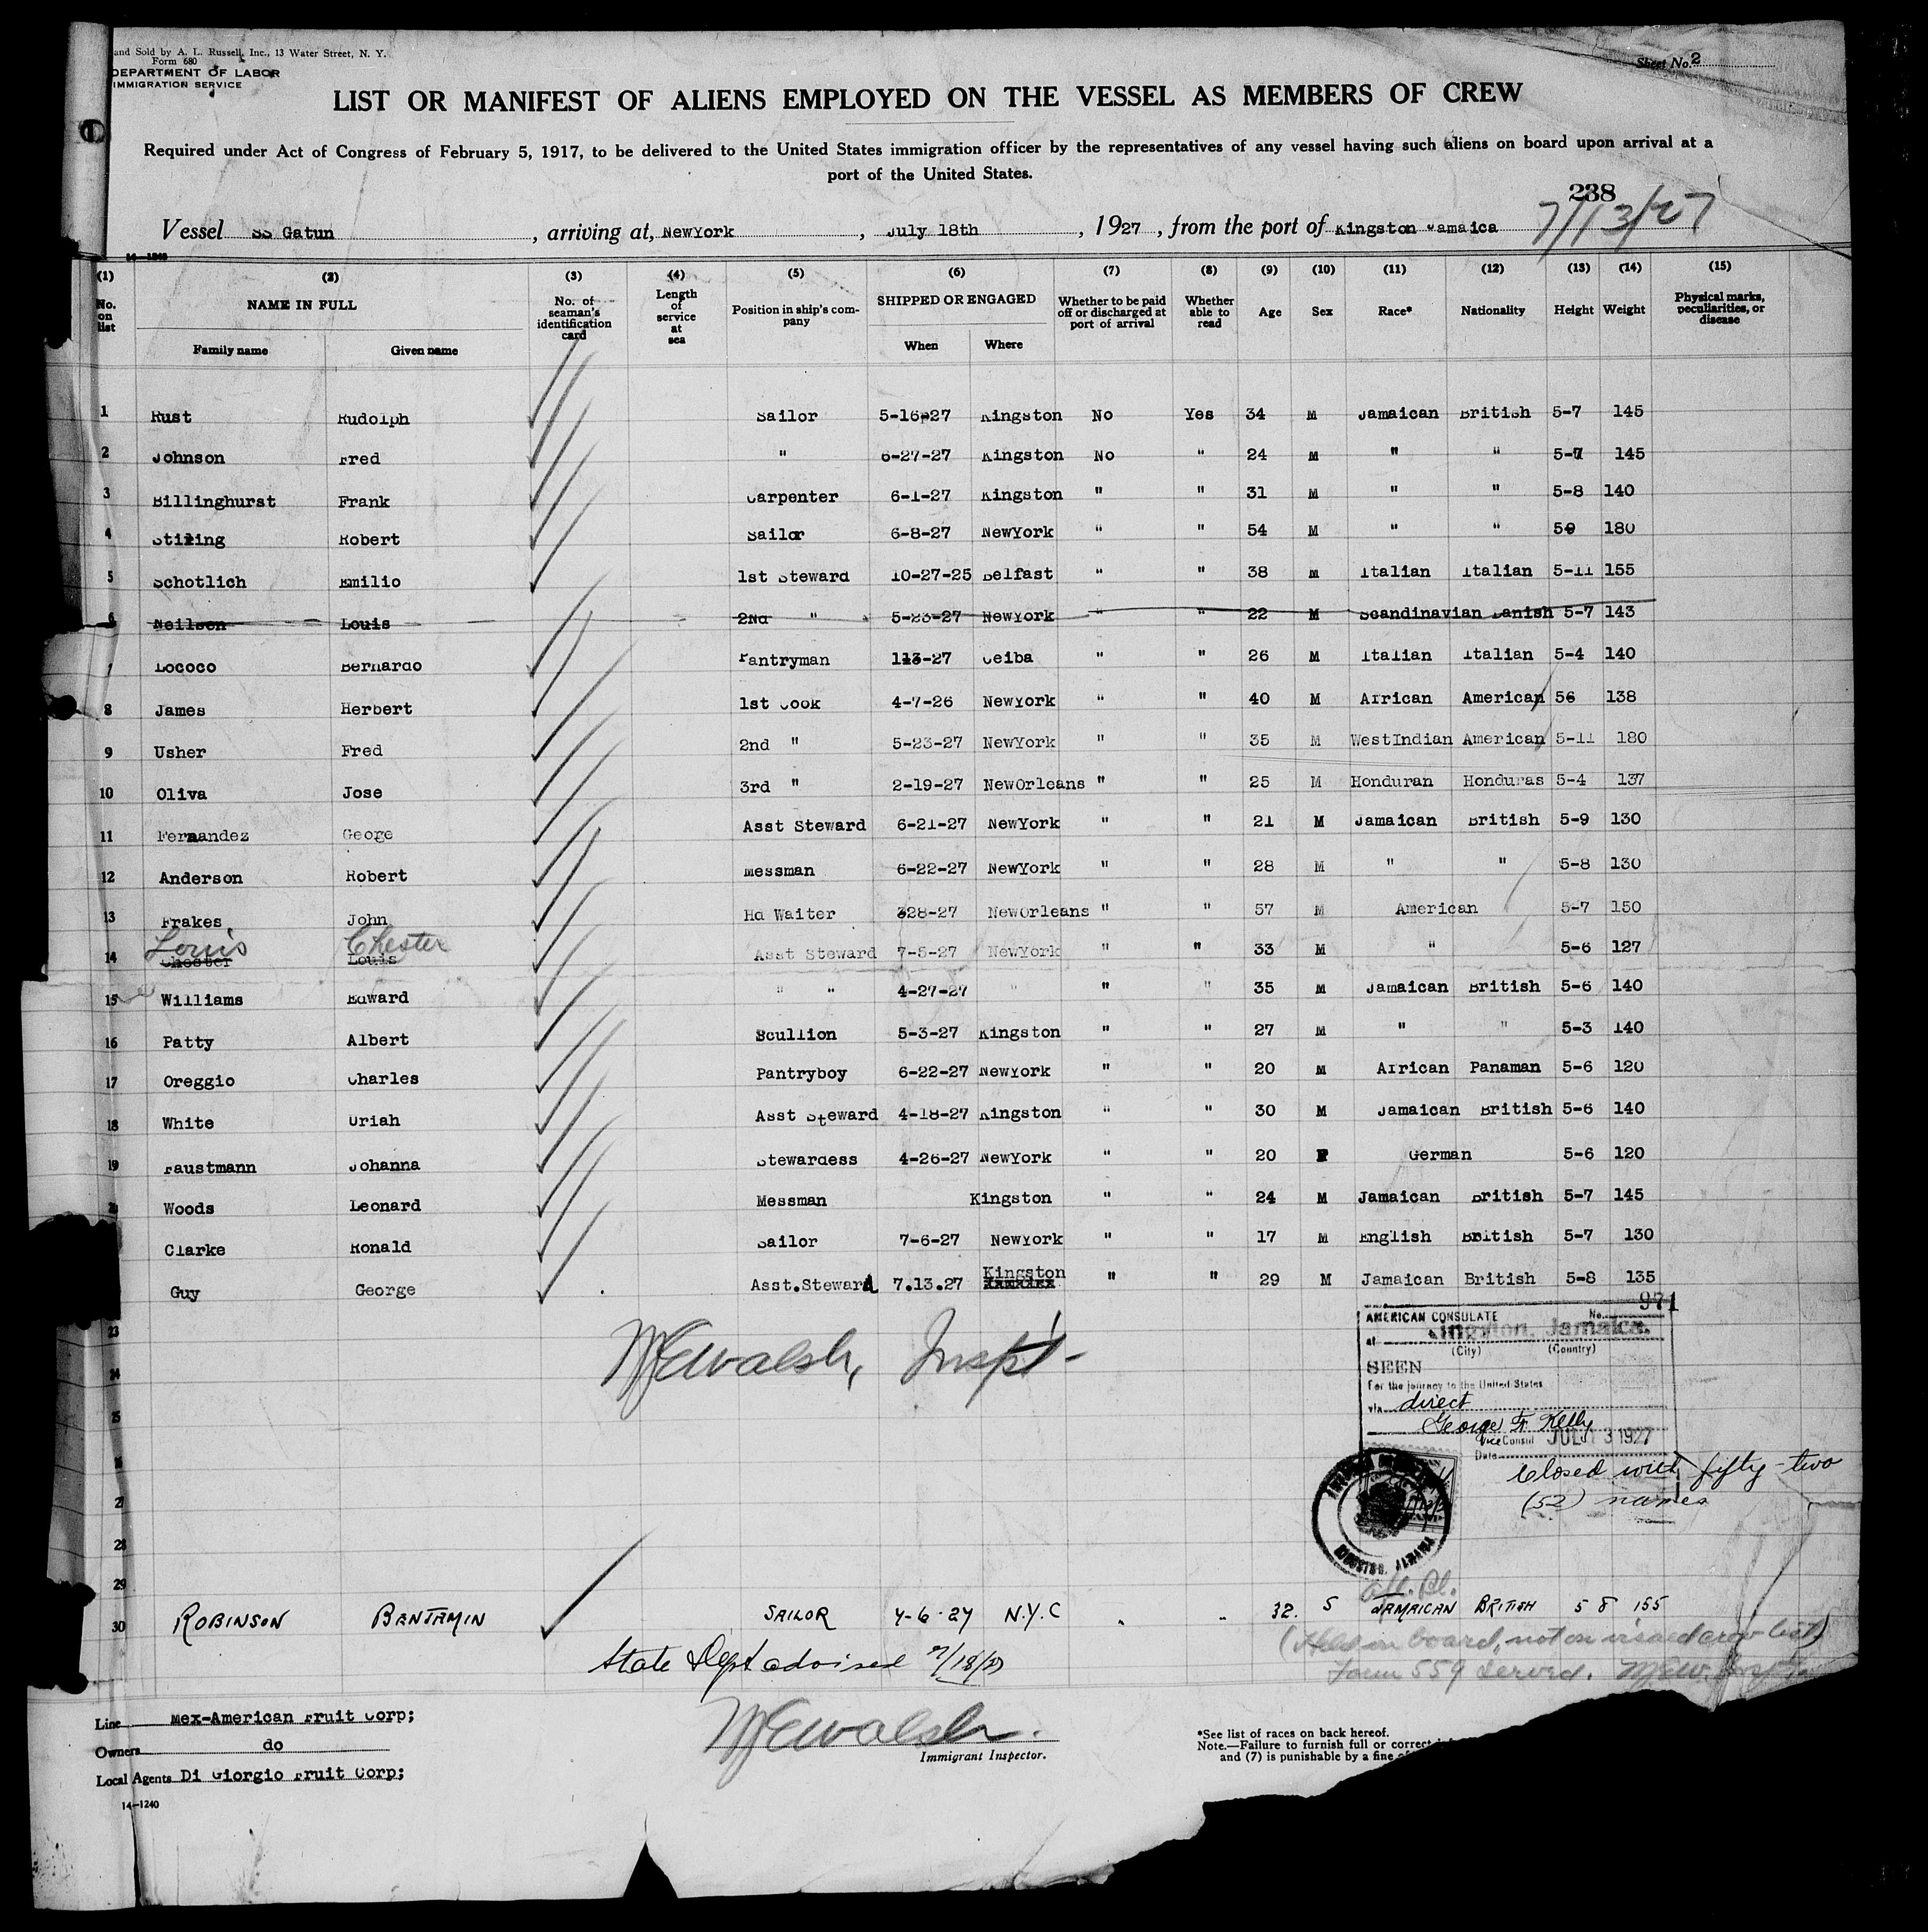 and Sold by A. L. Russell, Inc., 13 Water Street, N. Y.
Form 680
DEPARTMENT OF LABOR
IMMIGRATION SERVICE
Sheet No. 2
LIST OR MANIFEST OF ALIENS EMPLOYED ON THE VESSEL AS MEMBERS OF CREW
Required under Act of Congress of February 5, 1917, to be delivered to the United States immigration officer by the representatives of any vessel having such aliens on board upon arrival at a
port of the United States.
238
7/13/27
Vessel SS Gatun, arriving at, NewYork, July 18th, 1927, from the port of Kingston Jamaica
14-1240
(1) (2) (3) (4) (5) (6) (7) (8) (9) (10) (11) (12) (13) (14) (15)
No. on list NAME IN FULL Family name Given name No. of seaman's identification card Length of service at sea Position in ship's company SHIPPED OR ENGAGED When Where Whether to be paid off or discharged at port of arrival Whether able to read Age Sex Race* Nationality Height Weight Physical marks, peculiarities, or disease
1 Rust Rudolph Sailor 5-16-27 Kingston No Yes 34 M Jamaican British 5-7 145
2 Johnson Fred " 6-27-27 Kingston No " 24 M " " 5-7 145
3 Billinghurst Frank Carpenter 6-1-27 Kingston " " 31 M " " 5-8 140
4 Stiring Robert Sailor 6-8-27 NewYork " " 54 M " " 59 180
5 Schotlich Emilio 1st Steward 10-27-25 Belfast " " 38 M Italian Italian 5-11 155
6 Neilsen Louis 2Nd " 5-23-27 NewYork " " 22 M Scandinavian Danish 5-7 143
7 Lococo Bernardo Pantryman 113-27 Ceiba " " 26 M Italian Italian 5-4 140
8 James Herbert 1st Cook 4-7-26 NewYork " " 40 M African American 56 138
9 Usher Fred 2nd " 5-23-27 NewYork " " 35 M WestIndian American 5-11 180
10 Oliva Jose 3rd " 2-19-27 NewOrleans " " 25 M Honduran Honduras 5-4 137
11 Fernandez George Asst Steward 6-21-27 NewYork " " 21 M Jamaican British 5-9 130
12 Anderson Robert Messman 6-22-27 NewYork " " 28 M " " 5-8 130
13 Frakes John Hd Waiter 328-27 NewOrleans " " 57 M American 5-7 150
Louis Chester
14 Chester Louis Asst Steward 7-5-27 NewYork " " 33 M " 5-6 127
15 Williams Edward " " 4-27-27 " " " 35 M Jamaican British 5-6 140
16 Patty Albert Scullion 5-3-27 Kingston " " 27 M " " 5-3 140
17 Oreggio Charles Pantryboy 6-22-27 NewYork " " 20 M African Panaman 5-6 120
18 White Uriah Asst Steward 4-18-27 Kingston " " 30 M Jamaican British 5-6 140
19 Faustmann Johanna Stewardess 4-26-27 NewYork " " 20 F German 5-6 120
Woods Leonard Messman Kingston " " 24 M Jamaican British 5-7 145
Clarke Ronald Sailor 7-6-27 NewYork " " 17 M English British 5-7 130
Guy George Asst.Steward 7.13.27 Kingston " " 29 M Jamaican British 5-8 135
971
23
24
25
26
27
28
29
WEWalsh, Inspt-
AMERICAN CONSULATE No.
at Kingston, Jamaica.
(City) (Country)
SEEN
For the journey to the United States
via direct
George F. Kelly
Vice Consul
Date JUL 13 1927
Closed with fifty-two
(52) names
30 ROBINSON BENJAMIN SAILOR 7-6-27 N.Y.C " " 32. S JAMAICAN BRITISH 5 8 155
(Held on board, not on visaed crew list)
Form 559 served. WEW. Insptr
State Dept advised 7/18/27
WEWalsh.
Immigrant Inspector.
Line Mex-American Fruit Corp;
Owners do
Local Agents Di Giorgio Fruit Corp;
14-1240
*See list of races on back hereof.
Note.—Failure to furnish full or correct
and (7) is punishable by a fine of